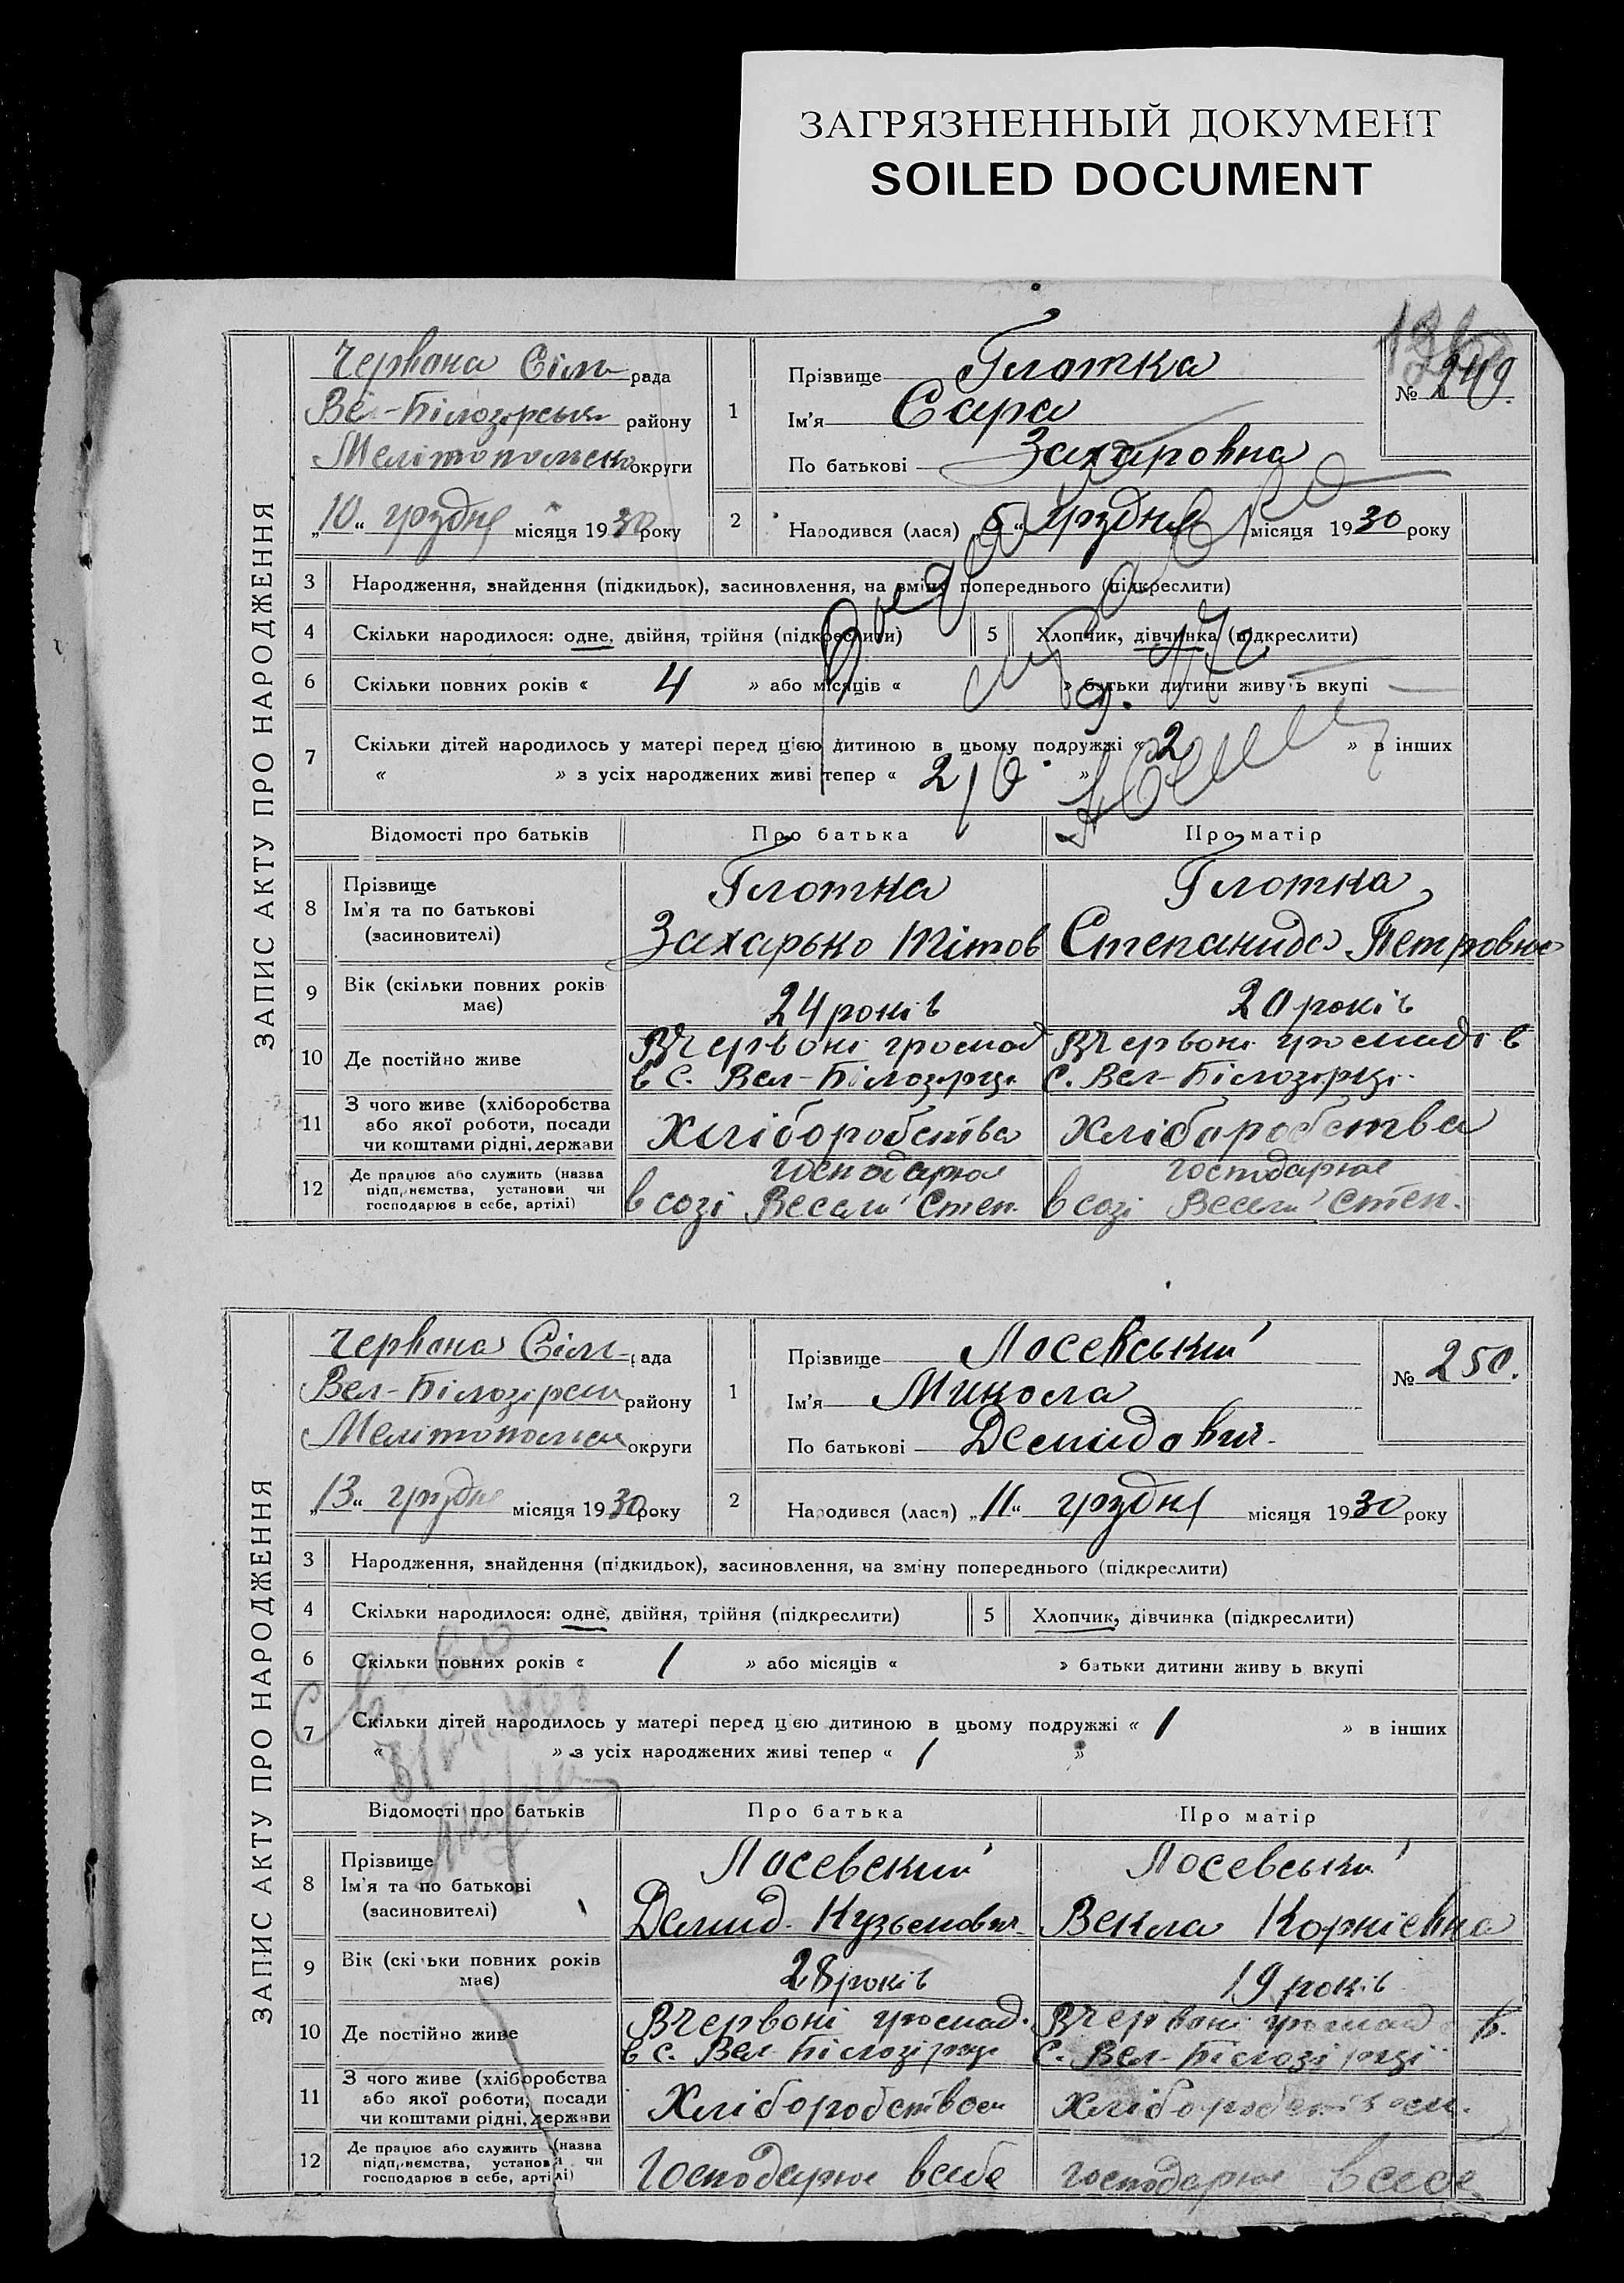 ЗАГРЯЗНЕННЫЙ ДОКУМЕНТ
SOILED DOCUMENT
ЗАПИС АКТУ ПРО НАРОДЖЕННЯ
Червона Сіль рада
Ве-Білозірськ району
Мелітопольсько округи
„10“ грудня місяця 1930 року
1
Прізвище Глотка
Ім'я Сара
По батькові Захаровна
№ 249.
2
Народився (лася) „5“ грудня місяця 1930 року
3 Народження, знайдення (підкидьок), засиновлення, на зміну попереднього (підкреслити)
4 Скільки народилося: одне, двійня, трійня (підкреслити) 5 Хлопчик, дівчинка (підкреслити)
6 Скільки повних років « 4 » або місяців « » батьки дитини живуть вкупі
7 Скільки дітей народилось у матері перед цією дитиною в цьому подружжі « 2 » в інших
« » з усіх народжених живі тепер « 2 »
Відомості про батьків Про батька Про матір
8 Прізвище
Ім'я та по батькові
(засиновителі)
Глотка
Захарько Тітов
Глотка
Степанида Петровна
9 Вік (скільки повних років має) 24 років 20 років
10 Де постійно живе
В Червоні громад
в с. Вел-Білозірці
В Червоні громаді в
с. Вел-Білозірці
11 З чого живе (хліборобства
або якої роботи, посади
чи коштами рідні, держави
Хліборобства Хліборобства
12 Де працює або служить (назва
підприємства, установи чи
господарює в себе, артілі)
господарює
в созі Весели Степ.
господарює
в созі Весели Степ.
ЗАПИС АКТУ ПРО НАРОДЖЕННЯ
Червона Сіль рада
Вел-Білозірськ району
Мелітопольськ округи
„13“ грудня місяця 1930 року
1
Прізвище Лосевський
Ім'я Микола
По батькові Демидович
№ 250.
2
Народився (лася) „11“ грудня місяця 1930 року
3 Народження, знайдення (підкидьок), засиновлення, на зміну попереднього (підкреслити)
4 Скільки народилося: одне, двійня, трійня (підкреслити) 5 Хлопчик, дівчинка (підкреслити)
6 Скільки повних років « 1 » або місяців « » батьки дитини живу ь вкупі
7 Скільки дітей народилось у матері перед цією дитиною в цьому подружжі « 1 » в інших
« » з усіх народжених живі тепер « 1 »
Відомості про батьків Про батька Про матір
8 Прізвище
Ім'я та по батькові
(засиновителі)
Лосевский
Демид Кузьмович
Лосевський
Векла Корнієвна
9 Вік (скільки повних років має) 28 років 19 років
10 Де постійно живе
В Червоні громад.
в с. Вел Білозірці
В Червоні громад в.
с. Вел-Білозірці
11 З чого живе (хліборобства
або якої роботи, посади
чи коштами рідні, держави
Хліборобством Хліборобством.
12 Де працює або служить (назва
підприємства, установи чи
господарює в себе, артілі)
Господарює в себе господарює в себе